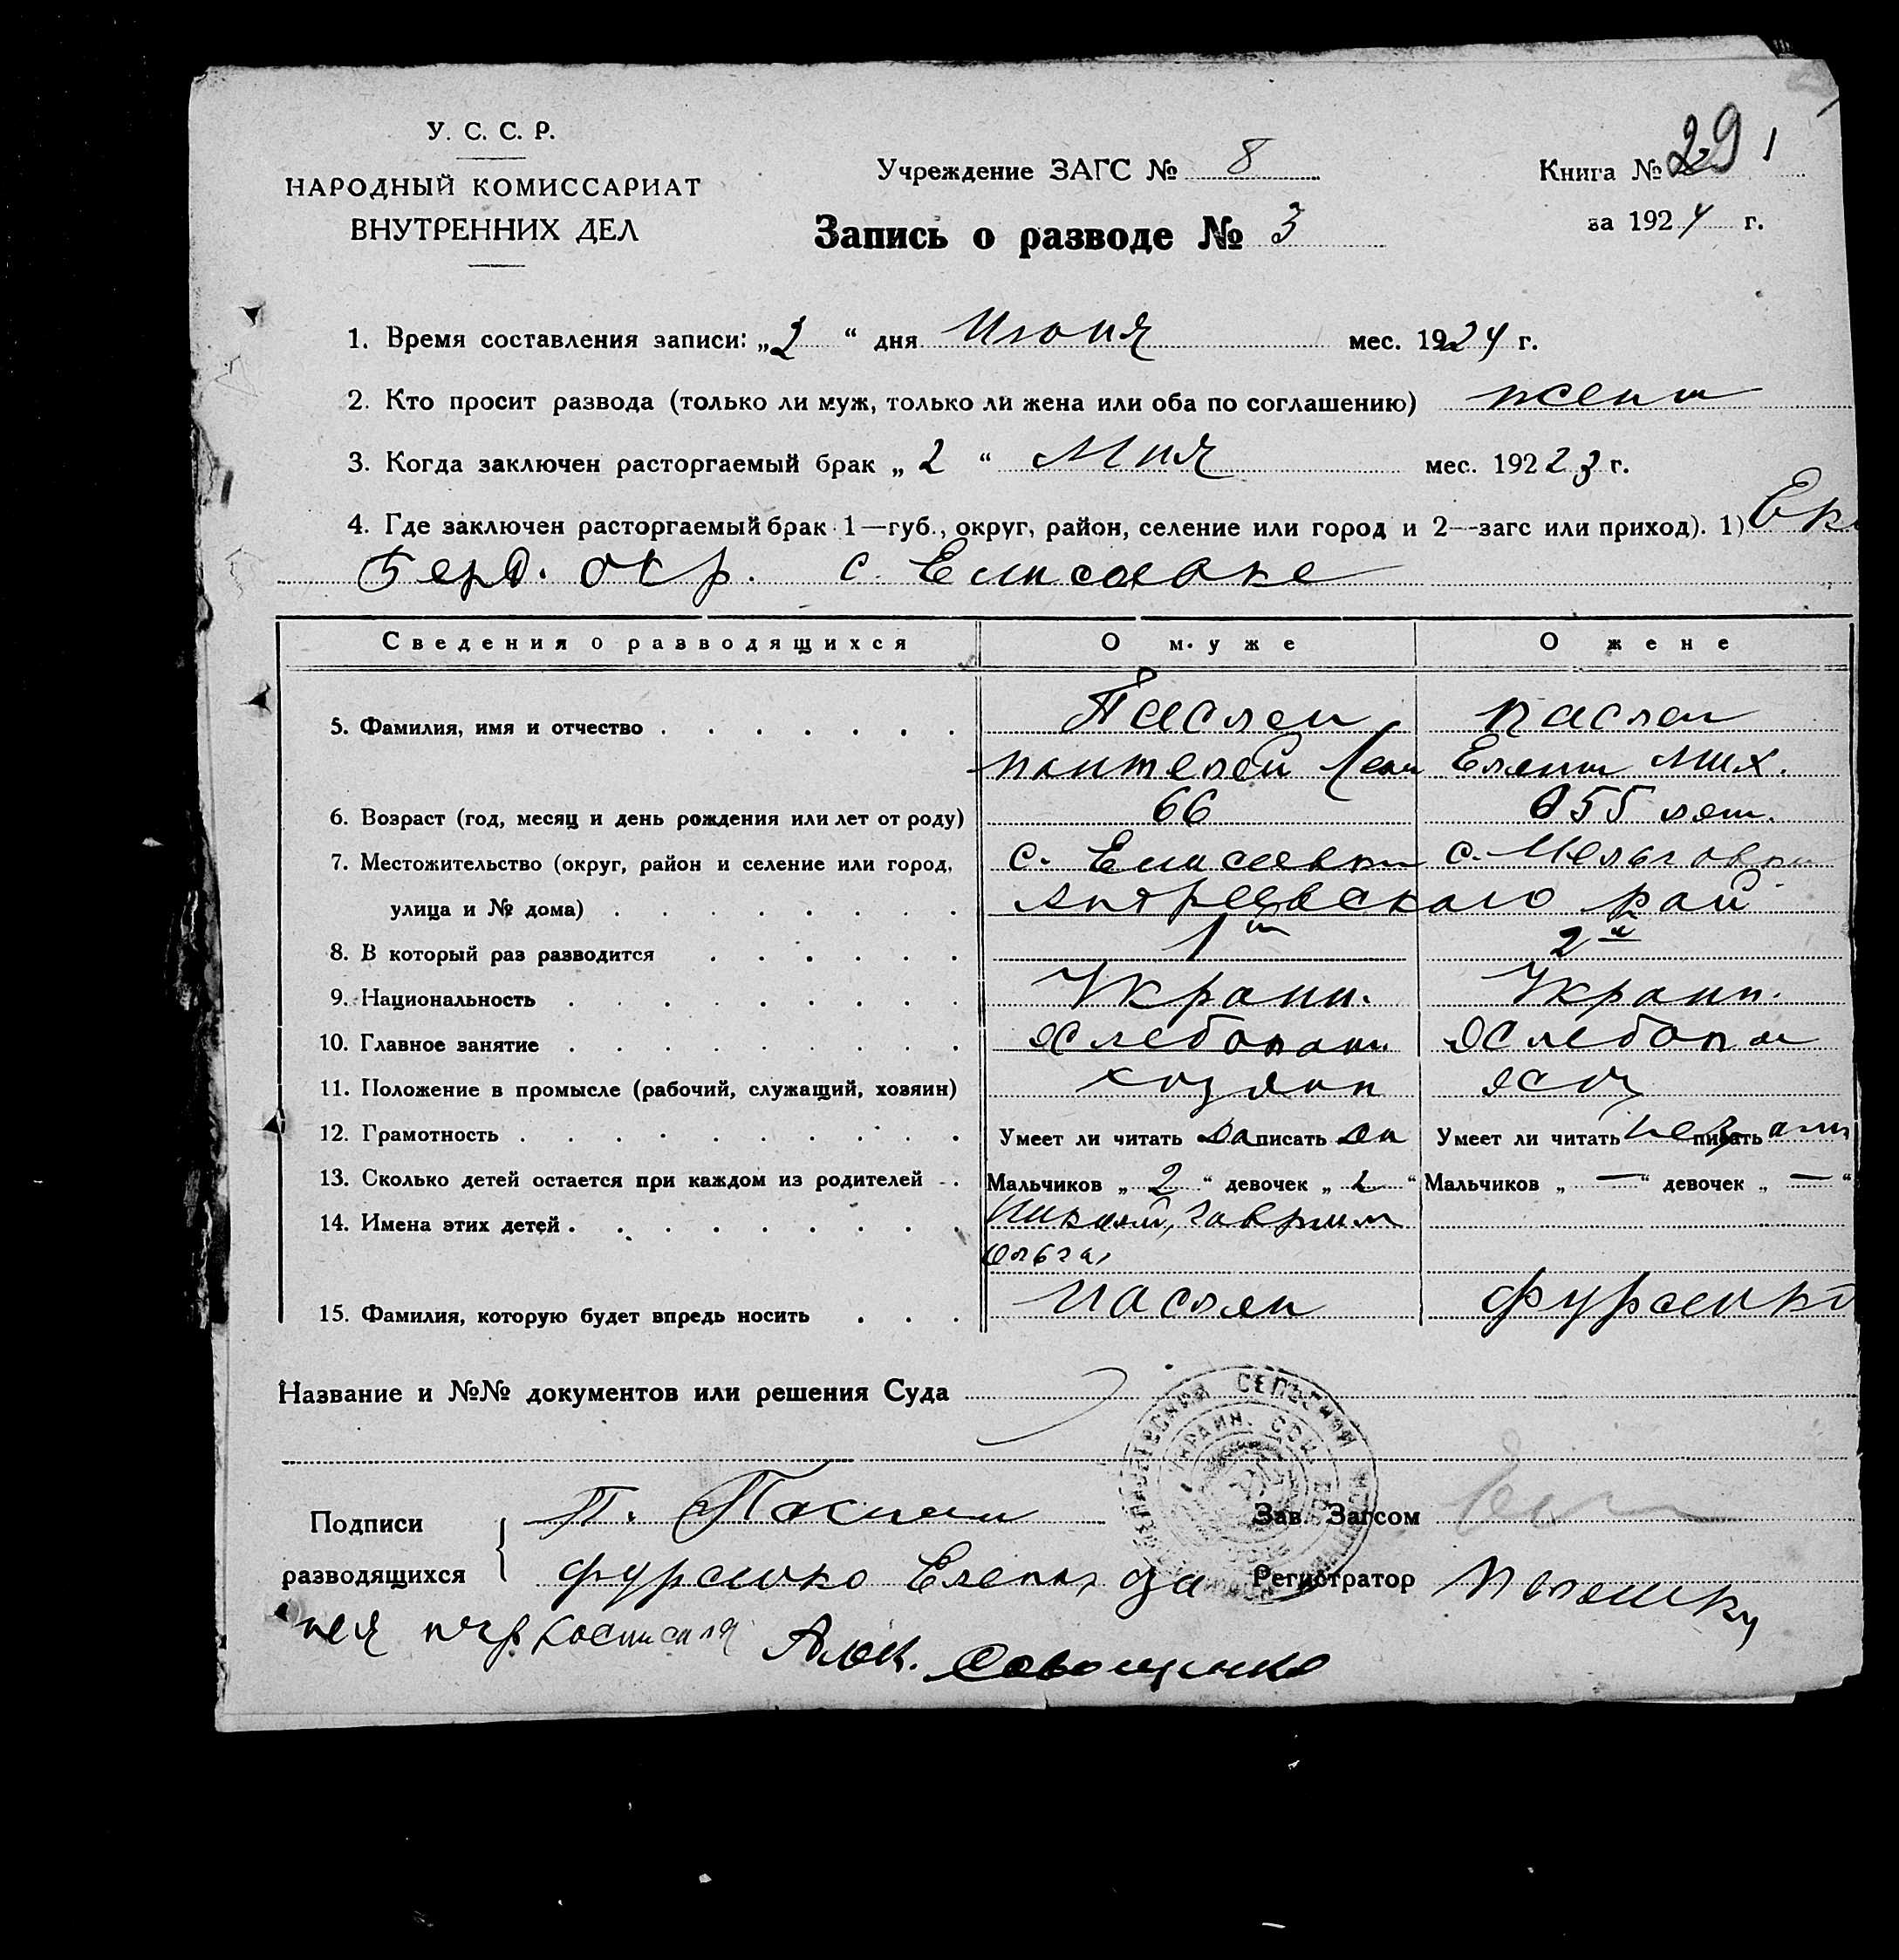 У. С. С. Р.
НАРОДНЫЙ КОМИССАРИАТ
ВНУТРЕННИХ ДЕЛ
Учреждение ЗАГС № 8
Запись о разводе № 3
Книга № 29
за 1924 г.
1. Время составления записи: „2“ дня Июня мес. 1924 г.
2. Кто просит развода (только ли муж, только ли жена или оба по соглашению) жена
3. Когда заключен расторгаемый брак „2“ Мая мес. 192 23 г.
4. Где заключен расторгаемый брак 1—губ., округ, район, селение или город и 2—загс или приход). 1) Ек
Берд. окр. с. Елисаовке
Сведения о разводящихся О муже О жене
5. Фамилия, имя и отчество Паслен Паслен
Пантелей Елена Мих.
6. Возраст (год, месяц и день рождения или лет от роду) 66 55 лет.
7. Местожительство (округ, район и селение или город, с. Елисеевки с.
улица и № дома) рай
8. В который раз разводится 1й 2й
9. Национальность Украин. Украин.
10. Главное занятие хлебопаш. хлебопаш
11. Положение в промысле (рабочий, служащий, хозяин) хозяин хоз
12. Грамотность Умеет ли читать да писать да Умеет ли читать писать
13. Сколько детей остается при каждом из родителей Мальчиков „2“ девочек „1“ Мальчиков „—“ девочек „—“
14. Имена этих детей Николай, Гавриил
Ольга,
15. Фамилия, которую будет впредь носить Паслен Фурсенко
Название и №№ документов или решения Суда
Подписи
разводящихся
П. Паслен
Фурсенко Елена за
нея
Зав. Загсом
Регистратор